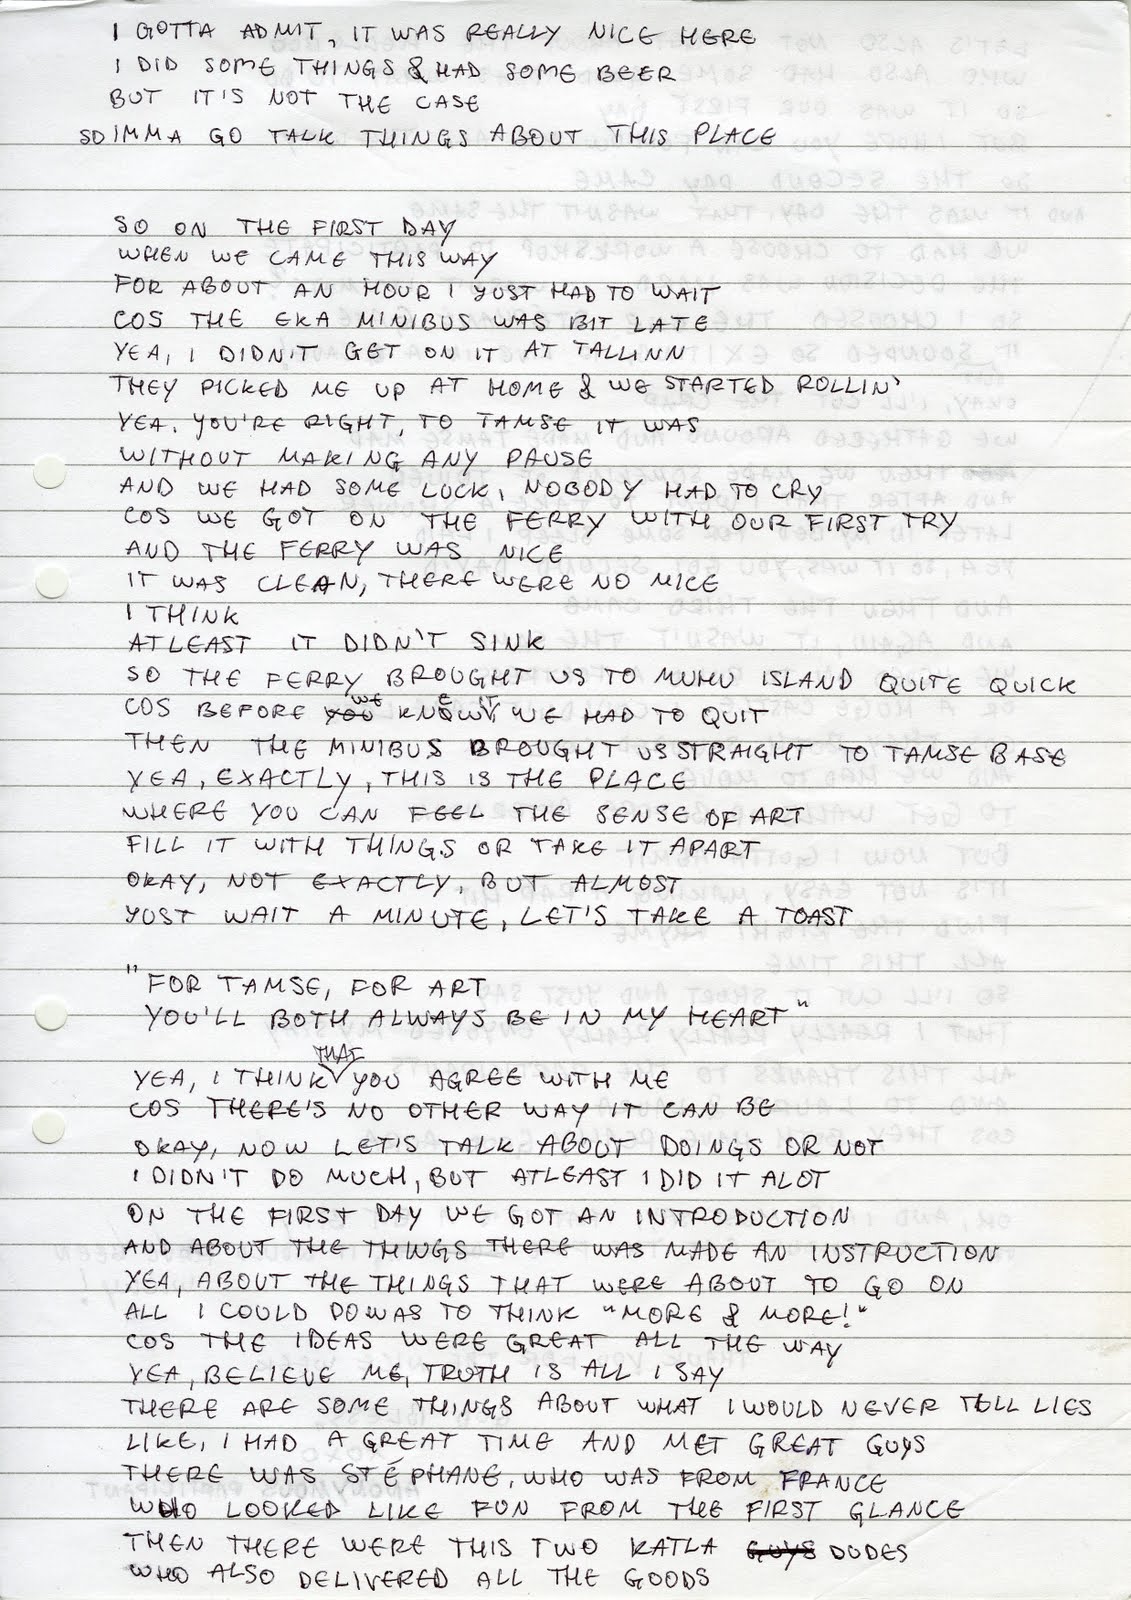 I GOTTA ADMIT, IT WAS REALLY NICE HERE
I DID SOME THINGS & HAD SOME BEER
BUT IT'S NOT THE CASE
SO IMMA GO TALK THINGS ABOUT THIS PLACE
SO ON THE FIRST DAY
WHEN WE CAME THIS WAY
FOR ABOUT AN HOUR I YUST HAD TO WAIT
COS THE EKA MINIBUS WAS BIT LATE
YEA, I DIDN'T GET ON IT AT TALLINN
THEY PICKED ME UP AT HOME & WE STARTED ROLLIN'
YEA, YOU'RE RIGHT, TO TAMSE IT WAS
WITHOUT MAKING ANY PAUSE
AND WE HAD SOME LUCK, NOBODY HAD TO CRY
COS WE GOT ON THE FERRY WITH OUR FIRST TRY
AND THE FERRY WAS NICE
IT WAS CLEAN, THERE WERE NO MICE
I THINK
ATLEAST IT DIDN'T SINK
SO THE FERRY BROUGHT US TO MUHU ISLAND QUITE QUICK
COS BEFORE YOU WE KNEW IT, WE HAD TO QUIT
THEN THE MINIBUS BROUGHT US STRAIGHT TO TAMSE BASE
YEA, EXACTLY, THIS IS THE PLACE
WHERE YOU CAN FEEL THE SENSE OF ART
FILL IT WITH THINGS OR TAKE IT APART
OKAY, NOT EXACTLY, BUT ALMOST
YUST WAIT A MINUTE, LET'S TAKE A TOAST
"FOR TAMSE, FOR ART
YOU'LL BOTH ALWAYS BE IN MY HEART"
YEA, I THINK THAT YOU AGREE WITH ME
COS THERE'S NO OTHER WAY IT CAN BE
OKAY, NOW LET'S TALK ABOUT DOINGS OR NOT
I DIDN'T DO MUCH, BUT ATLEAST I DID IT ALOT
ON THE FIRST DAY WE GOT AN INTRODUCTION
AND ABOUT THE THINGS THERE WAS MADE AN INSTRUCTION
YEA, ABOUT THE THINGS THAT WERE ABOUT TO GO ON
ALL I COULD DO WAS TO THINK "MORE & MORE!"
COS THE IDEAS WERE GREAT ALL THE WAY
YEA, BELIEVE ME, TRUTH IS ALL I SAY
THERE ARE SOME THINGS ABOUT WHAT I WOULD NEVER TELL LIES
LIKE, I HAD A GREAT TIME AND MET GREAT GUYS
THERE WAS STÉPHANE, WHO WAS FROM FRANCE
WHO LOOKED LIKE FUN FROM THE FIRST GLANCE
THEN THERE WERE THIS TWO KATLA GUYS DUDES
WHO ALSO DELIVERED ALL THE GOODS